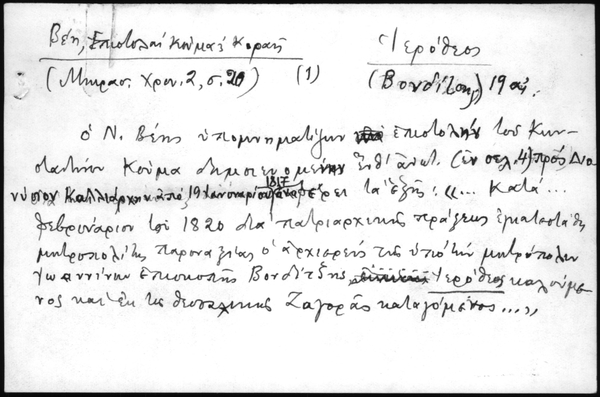 Βέη, Ἐπιστολαὶ Κούμα & Κοραῆ
Ἱερόθεος
(Μικρασ. Χρον. 2, σ. 20) (1)
(Βονδίτσης) 19 αἰ.
ὁ Ν. Βέης ὑπομνηματίζων ἐπιστολὴν τοῦ Κων-
σταντίνου Κούμα δημοσιευομένην ἔνθ' ἀνωτ. (ἐν σελ. 4) πρὸς Διο-
νύσιον Καλλιάρχην ἀπὸ 19 Ἰανουαρίου 1817 ἀναφέρει τὰ ἑξῆς: «... Κατὰ ...
Φεβρουάριον τοῦ 1820 διὰ πατριαρχικῆς πράξεως ἐγκατεστάθη
μητροπολίτης Παροναξίας ὁ ἀρχιερεὺς τῆς ὑπὸ τὴν μητρόπολιν
Ἰωαννίνων ἐπισκοπῆς Βονδίτζης, Ἱερόθεος καλούμε-
νος καὶ ἐκ τῆς θεσσαλικῆς Ζαγορᾶς καταγόμενος ...»